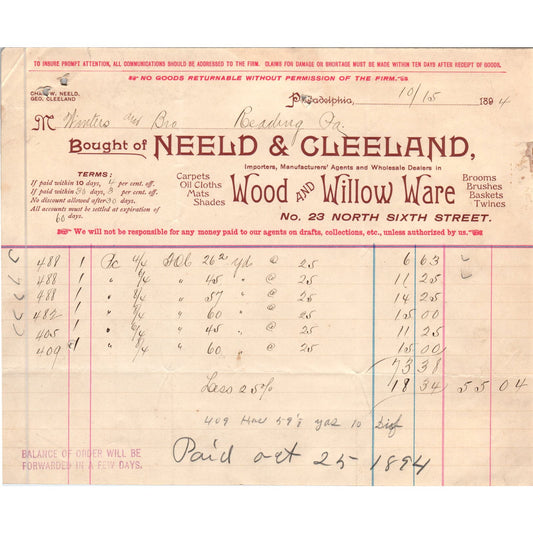 TO INSURE PROMPT ATTENTION, ALL COMMUNICATIONS SHOULD BE ADDRESSED TO THE FIRM. CLAIMS FOR DAMAGE OR SHORTAGE MUST BE MADE WITHIN TEN DAYS AFTER RECEIPT OF GOODS.
NO GOODS RETURNABLE WITHOUT PERMISSION OF THE FIRM.
CHAS. W. NEELD,
GEO. CLEELAND
Philadelphia, 10/15 1894
M Winters and Bro Reading Pa.
Bought of NEELD & CLEELAND,
Importers, Manufacturers' Agents and Wholesale Dealers in
Wood AND Willow Ware
No. 23 NORTH SIXTH STREET.
TERMS:
If paid within 10 days, per cent. off.
If paid within 30 days, per cent. off.
No discount allowed after 30 days.
All accounts must be settled at expiration of
60 days.
Carpets
Oil Cloths
Mats
Shades
Brooms
Brushes
Baskets
Twines
We will not be responsible for any money paid to our agents on drafts, collections, etc., unless authorized by us.
488 1 Pc 4/4 26 2 yd @ 25 6 63
488 1 " " 45 " @ 25 11 25
488 1 " " 57 " @ 25 14 25
482 1 " " 60 " @ 25 15 00
405 1 " " 45 " @ 25 11 25
409 1 " " 60 " @ 25 15 00
73 38
Less 25% 18 34 55 04
409 59 yds 10
Paid oct 25 1894
BALANCE OF ORDER WILL BE
FORWARDED IN A FEW DAYS.